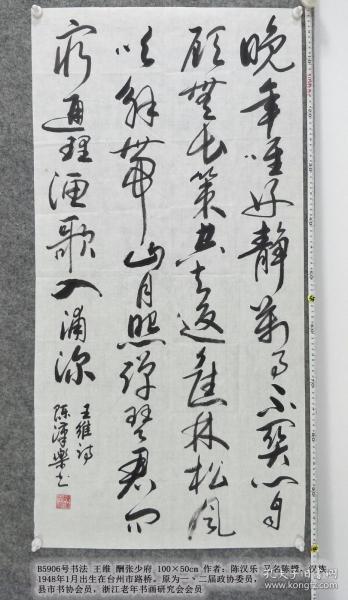 晚年唯好静萬事不關心自
顧無長策空知返舊林松風
吹解帶山月照彈琴君問
窮通理漁歌入浦深
王維詩
陳漢樂书
B5906号书法 王维 酬张少府 100×50cm 作者：陈汉乐 又名陈 汉族，
1948年1月出生在台州市路桥。原为一、二届政协委员，
县市书协会员，浙江老年书画研究会会员